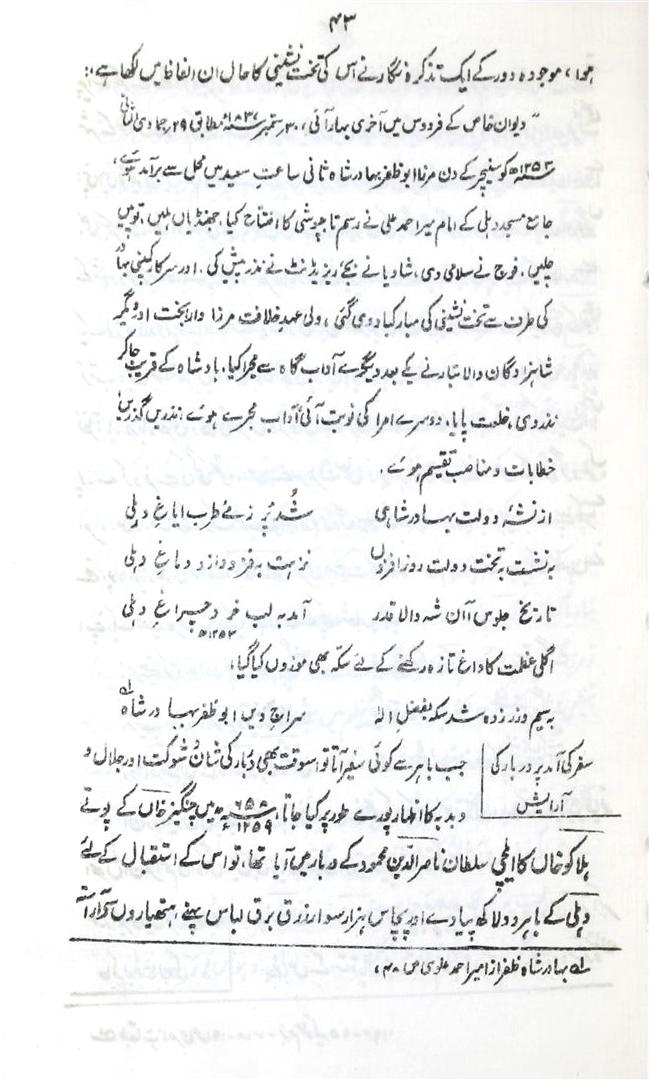 ۴۳
ہوا، موجودہ دور کے ایک تذکرہ نگار نے اس کی تخت نشینی کا حال ان الفاظ میں لکھا ہے :
" دیوان خاص کے فردوس میں آخری بہار آئی، ۳۰ ستمبر ۱۸۳۷ء مطابق ۲۹ جمادی الثانی
۱۲۵۳ھ کو سنیچر کے دن مرزا ابو ظفر بہادر شاہ ثانی ساعت سعید میں محل سے برآمد ہوئے،
جامع مسجد دہلی کے امام میر احمد علی نے رسم تاجپوشی کا افتتاح کیا، جھنڈیاں ہلیں، توپیں
چلیں، فوج نے سلامی دی، شادیانے بجے، ریزیڈنٹ نے نذر پیش کی، اور سرکار کمپنی بہادر
کی طرف سے تخت نشینی کی مبارکباد دی گئی، ولی عہد خلافت مرزا دارا بخت اور دیگر
شاہزادگان والا تبار نے یکے بعد دیگرے آداب گاہ سے مجرا کیا، بادشاہ کے قریب جا کر
نذر دی، خلعت پایا، دوسرے امرا کی نوبت آئی، آداب مجرے ہوئے، نذریں گزریں،
خطابات و مناصب تقسیم ہوئے۔
از نشۂ دولت بہادر شاہی شد پر ز مئے طرب ایاغ دہلی
بہ نشست بہ تخت دولت روز افزوں نزہت بفزود از و دماغ دہلی
تاریخ جلوس آن شہ والا قدر آمد بہ لب خرد چراغ دہلی
۱۲۵۳ھ
اگلی عظمت کا داغ تازہ رکھنے کے لئے سکہ بھی موزوں کیا گیا،
بہ سیم و زر زدہ شد سکہ بفضل الہ سراج دین ابو ظفر بہادر شاہ لہ
سفر کی آمد پر دربار کی آرایش
جب باہر سے کوئی سفیر آتا تو اسوقت بھی دربار کی شان شوکت اور جلال و
دبدبہ کا اظہار پورے طور پر کیا جاتا، ۶۵۸ھ ۱۲۵۹ء میں چنگیز خاں کے پوتے
ہلاکو خاں کا ایلچی سلطان ناصر الدین محمود کے دربار میں آیا تھا، تو اس کے استقبال کے لئے
دہلی کے باہر دو لاکھ پیادے اور پچاس ہزار سوار زرق برق لباس پہنے، ہتھیاروں سے آراستہ
لہ بہادر شاہ ظفر از امیر احمد علوی ص ۴۸،